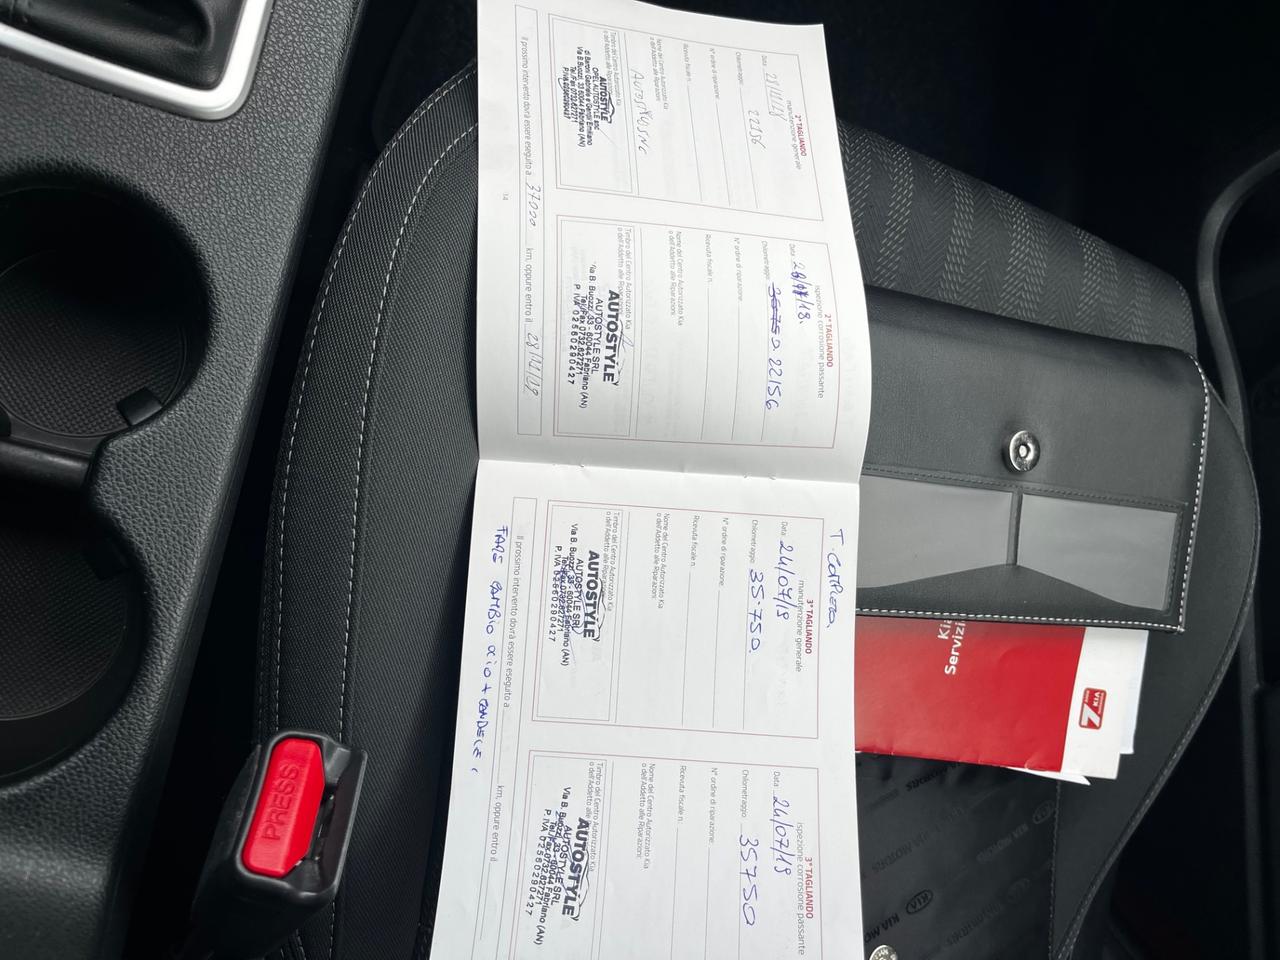 2° TAGLIANDO
manutenzione generale
Data: 28/11/18
Chilometraggio: 22156
N° ordine di riparazione:
Ricevuta fiscale n.
Nome del Centro Autorizzato Kia
o dell'Addetto alle Riparazioni:
Timbro del Centro Autorizzato Kia
o dell'Addetto alle Riparazioni:
AUTOSTYLE
OPEL AUTOSTYLE snc
di Baroni Gabriele e Gentili Emiliano
Via B.Buozzi, 33 60044 Fabriano (AN)
Tel./Fax 0732.627271
Il prossimo intervento dovrà essere eseguito a 37000 km, oppure entro il
14
2° TAGLIANDO
ispezione corrosione passante
Data:
Chilometraggio: 35750 22156
N° ordine di riparazione:
Ricevuta fiscale n.
Nome del Centro Autorizzato Kia
o dell'Addetto alle Riparazioni:
Timbro del Centro Autorizzato Kia
o dell'Addetto alle Riparazioni:
AUTOSTYLE
AUTOSTYLE SRL
Via B. Buozzi, 33 - 60044 Fabriano (AN)
Tel./Fax 0732.627271
P. IVA 02560290427
3° TAGLIANDO
manutenzione generale
Data: 24/07/19
Chilometraggio: 35.750
N° ordine di riparazione:
Ricevuta fiscale n.
Nome del Centro Autorizzato Kia
o dell'Addetto alle Riparazioni:
Timbro del Centro Autorizzato Kia
o dell'Addetto alle Riparazioni:
AUTOSTYLE
AUTOSTYLE SRL
Via B. Buozzi, 33 - 60044 Fabriano (AN)
Tel./Fax 0732.627271
P. IVA 02560290427
Il prossimo intervento dovrà essere eseguito a km, oppure entro il
FARE CAMBIO OLIO + CANDELE
3° TAGLIANDO
ispezione corrosione passante
Data: 24/07/19
Chilometraggio: 35750
N° ordine di riparazione:
Ricevuta fiscale n.
Nome del Centro Autorizzato Kia
o dell'Addetto alle Riparazioni:
Timbro del Centro Autorizzato Kia
o dell'Addetto alle Riparazioni:
AUTOSTYLE
AUTOSTYLE SRL
Via B. Buozzi, 33 - 60044 Fabriano (AN)
Tel./Fax 0732.627271
P. IVA 02560290427
Kia
Servizi
7
KIA
PRESS